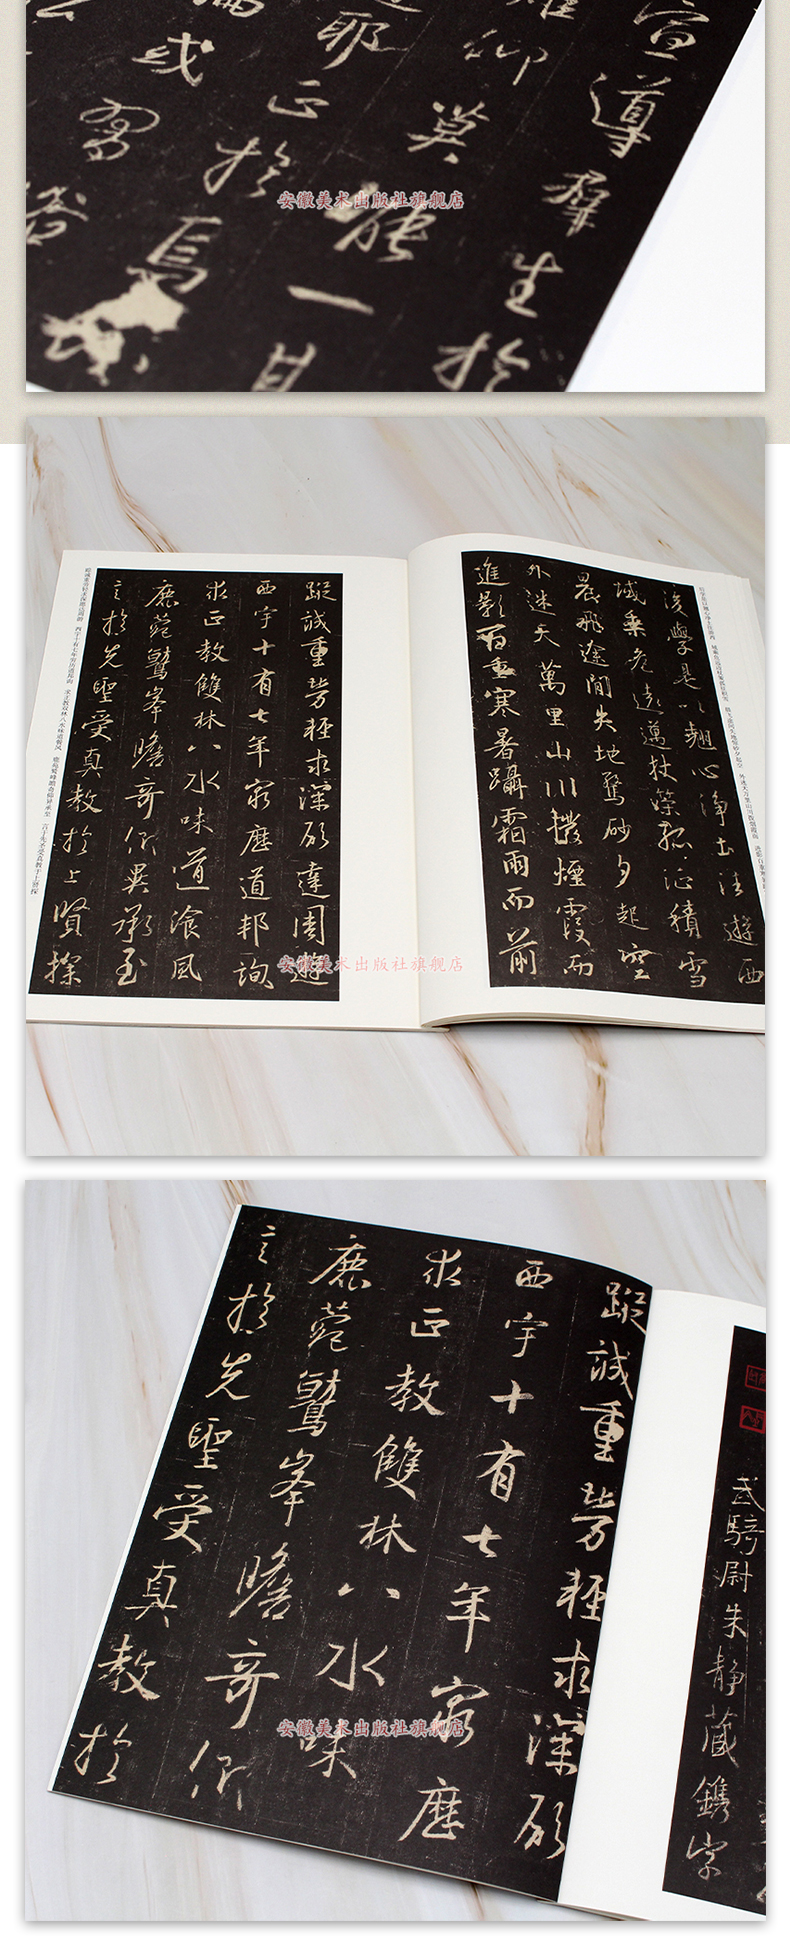 宣導群生於
難仰莫能一其
遵耶正於焉
或習俗
安徽美术出版社旗舰店
後學是以翹心淨土法遊西
域乗危遠邁杖策孤征積雪
晨飛途間失地驚砂夕起空
外迷天萬里山川撥煙霞而
進影百重寒暑躡霜雨而前
蹤誠重勞輕求深願達周遊
西宇十有七年窮歷道邦詢
求正教雙林八水味道飡風
鹿菀鷲峯瞻奇仰異承至
言於先聖受真教於上賢探
安徽美术出版社旗舰店
武騎尉朱靜藏鐫字
蹤誠重勞輕求深願
西宇十有七年窮歷
求正教雙林八水味
鹿菀鷲峯瞻奇仰
言於先聖受真教於
安徽美术出版社旗舰店